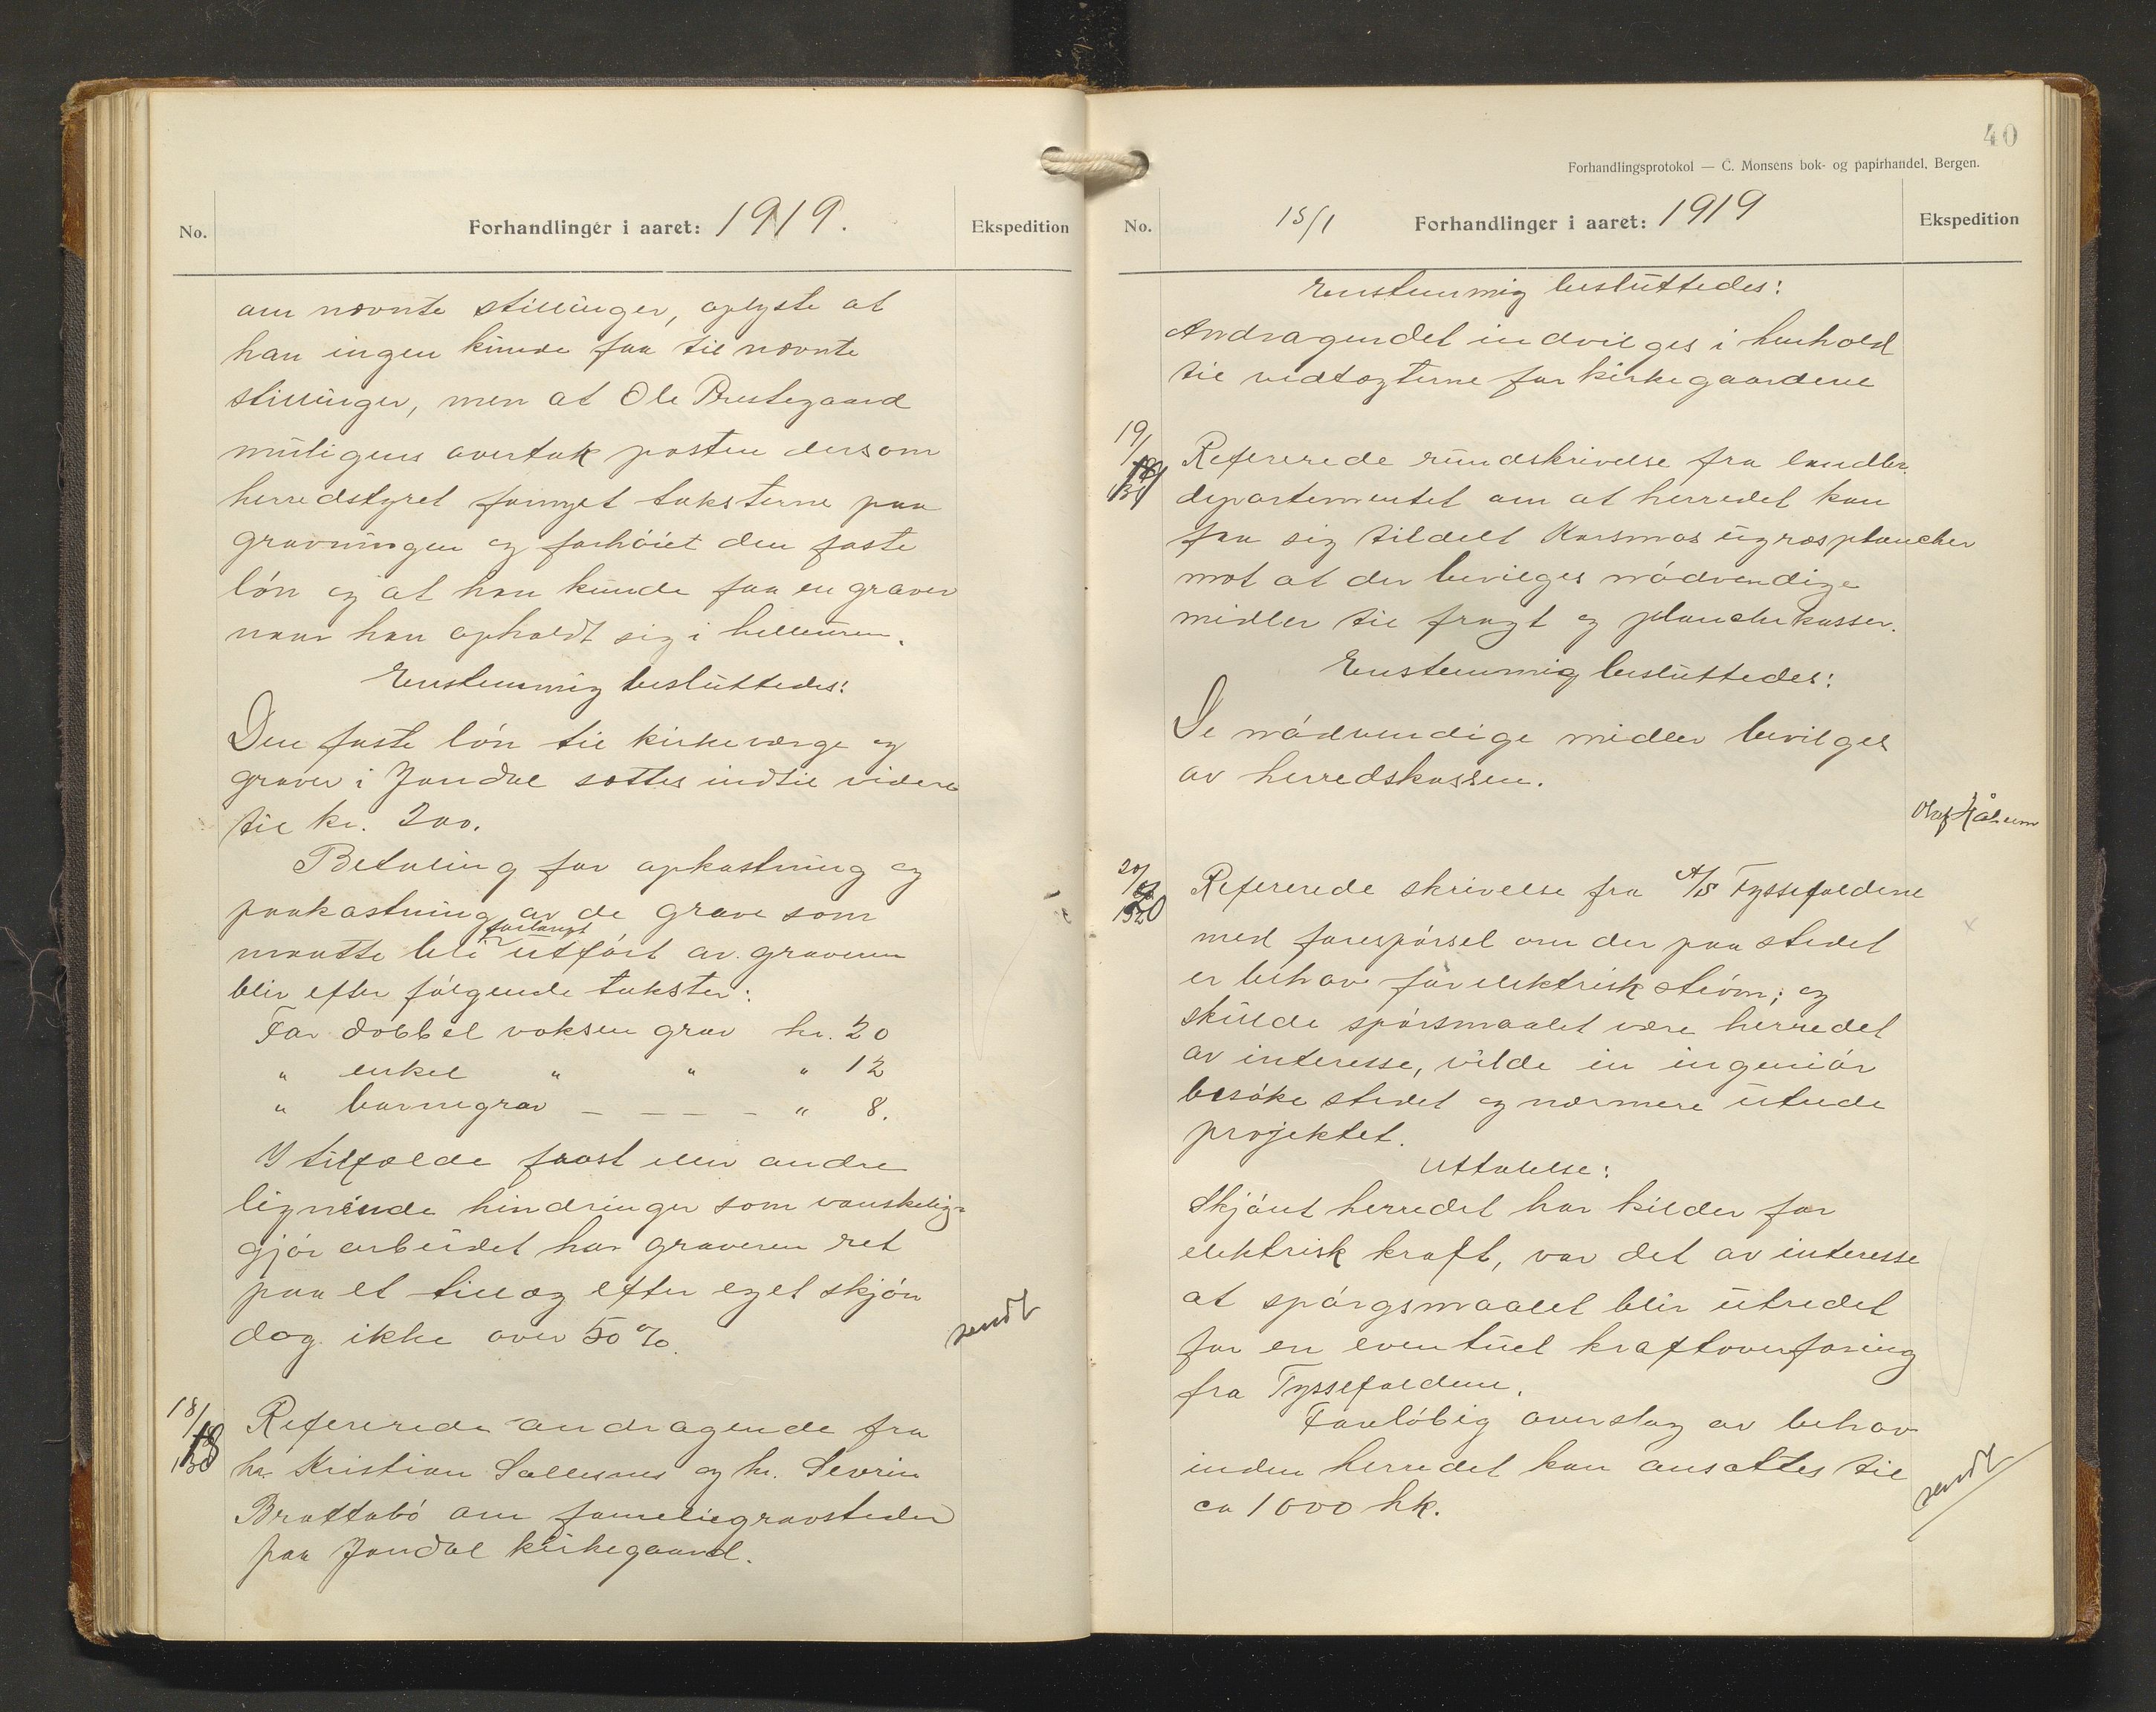 No.
Forhandlinger i aaret: 1919.
Ekspedition
om nævnte stillinger, oplyste at
han ingen kunde faa til nævnte
stillinger, men at Ole Prestegaard
muligens overtok posten dersom
herredstyret fornyet taksterne paa
gravningen og forhöiet den faste
lön og at han kunde faa en graver
naar han opholdt sig i
Enstemmig besluttedes:
Den faste lön til kirkeværge og
graver i Jondal sættes indtil videre
til kr. 200.
Betaling for opkastning og
paakastning av de grave som
maatte bli forlangt utfört av graveren
blir efter fölgende takster:
For dobbel voksen grav kr. 20
" enkel " " " 12
" barnegrav – – – – " 8.
I tilfælde frost eller andre
lignende hindringer som vanskelig-
gjör arbeidet har graveren ret
paa et tillæg efter eget skjön
dog ikke over 50 %.
sendt
18/
18
Refererede andragende fra
hr. Kristian Sællesnes og hr. Severin
Brattabö om familiegravsteder
paa Jondal kirkegaard.
40
Forhandlingsprotokol — C. Monsens bok- og papirhandel, Bergen.
No.
15/1
Forhandlinger i aaret: 1919
Ekspedition
Enstemmig besluttedes:
Andragendet indvilges i henhold
til vedtægterne for kirkegaardene
19/
Refererede rundskrivelse fra landbr.
departementet om at herredet kan
faa sig tildelt Korsmos ugræsplancher
mot at der bevilges nödvendige
midler til fragt og planchekasser.
Enstemmig besluttedes:
De nödvendige midler bevilges
av herredskassen.
Olaf
20/
20
Refererede skrivelse fra A/S Tyssefaldene
med forespörsel om der paa stedet
er behov for elektrisk ström; og
skulde spörsmaalet være herredet
av interesse, vilde en ingeniör
besöke stedet og nærmere utrede
projektet.
Uttalelse:
Skjönt herredet har kilder for
elektrisk kraft, var det av interesse
at spörgsmaalet blir utredet
for en eventuel kraftoverföring
fra Tyssefaldene.
Forelöbig overslag av behov
inden herredet kan ansættes til
ca 1000 hk.
sendt